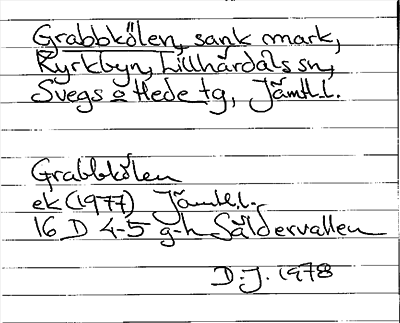 Grabbkölen, sank mark,
Kyrkbyn, Lillhärdals sn,
Svegs o Hede tg, Jämtl.l.
Grabbkölen
ek (1977) Jämtl.l.
16 D 4-5 g-h Säldervallen
D.J. 1978